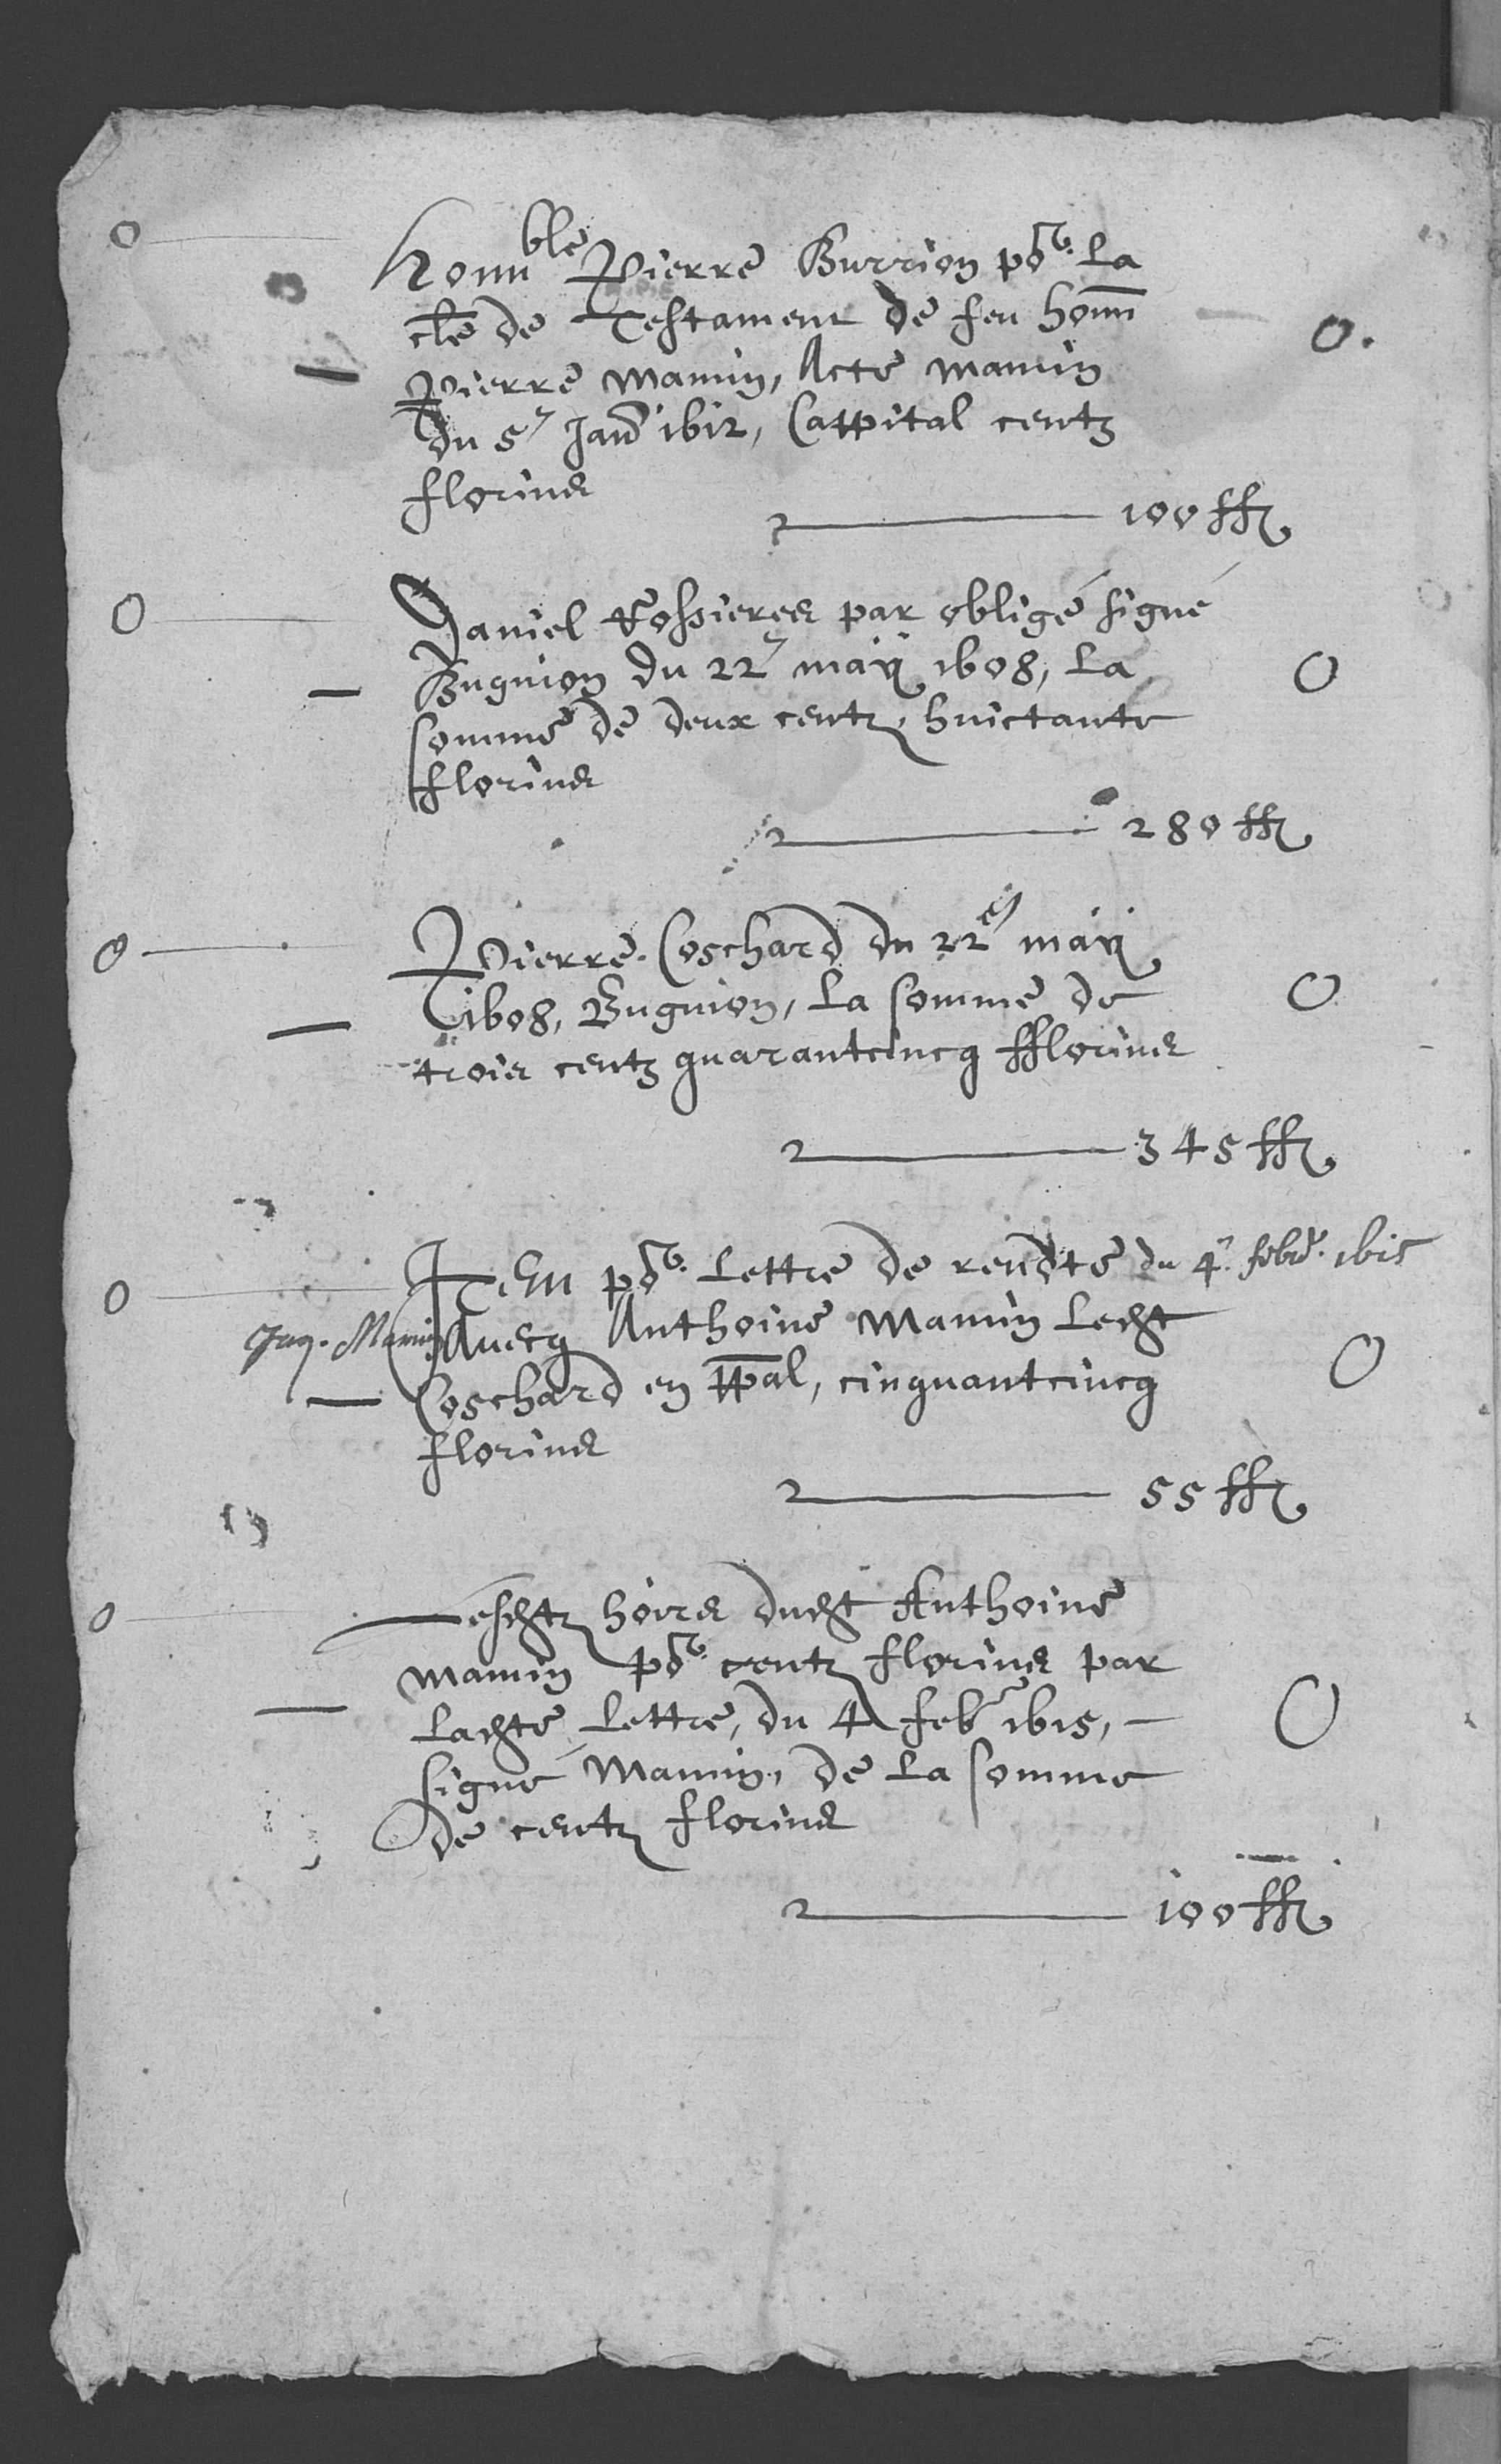 Honn^ble Pierre Burrion po^r. La
cle de Testament de feu honn
Pierre Mamin, Acte mamin
du 5^e Jan^r 1612, Cappital centz
florins
100 ff
Daniel Rossieres par obligé signé
Bugnion du 22^e may 1608, La
somme de deux centz huictante
florins
280 ff
Pierre Coschard du 22^e may
1608, Bugnion, La somme de
trois centz quarantcincq fflorins
345 ff
Item po^r. Lettre de rendte du 4^e. feb^r. 1615
Mamin Avecq Anthoine Mamin Ledt
Coschard en ppal, cinquantcincq
florins
55 ff
Lesdtz hoirs dudt Anthoine
mamin po^r. centz florins par
Ladte Lettre, du 4 feb^r 1615,
signé Mamin, de La somme
de centz florins
100 ff